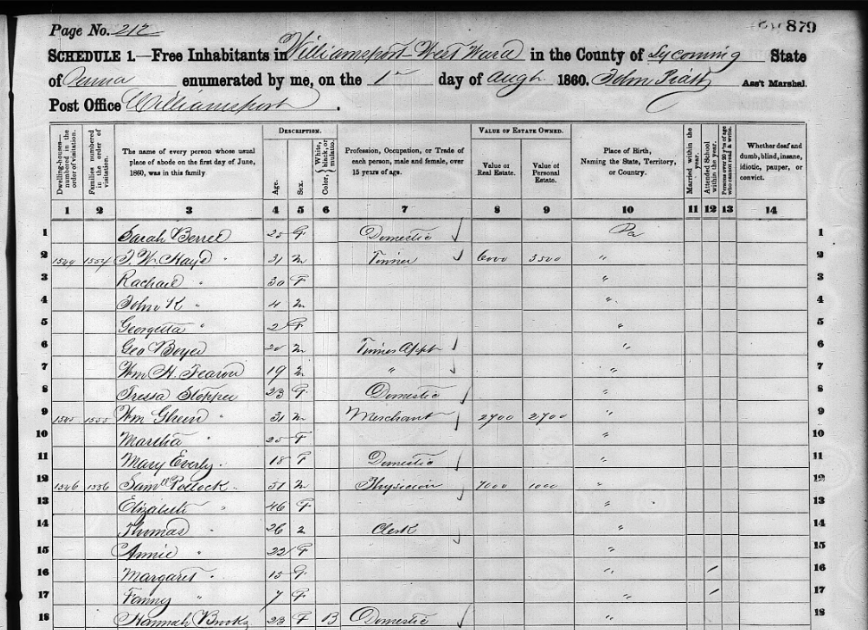 Page No. 212
879
SCHEDULE 1.—Free Inhabitants in Williamsport West Ward in the County of Lycoming State
of Penna enumerated by me, on the 1st day of Augt 1860. John Piatt Ass't Marshal.
Post Office Williamsport.
Dwelling-houses—numbered in the order of visitation.
Families numbered in the order of visitation.
The name of every person whose usual place of abode on the first day of June, 1860, was in this family
DESCRIPTION.
Age.
Sex.
Color, White, black, or mulatto.
Profession, Occupation, or Trade of each person, male and female, over 15 years of age.
VALUE OF ESTATE OWNED.
Value of Real Estate.
Value of Personal Estate.
Place of Birth, Naming the State, Territory, or Country.
Married within the year.
Attended School within the year.
Persons over 20 y'rs of age who cannot read & write.
Whether deaf and dumb, blind, insane, idiotic, pauper, or convict.
1 2 3 4 5 6 7 8 9 10 11 12 13 14
1 Sarah F Domestic / Pa 1
2 1554 31 M Tinner / 6000 3500 " 2
3 Rachael " 30 F " 3
4 John K " 4 M " 4
5 Georgetta " 2 F " 5
6 Geo Boyer 20 M Tinners Appt / " 6
7 Wm H. Fearon 19 M " / " 7
8 Tressa 23 F Domestic / " 8
9 1545 1555 Wm 31 M Merchant / 2700 2700 " 9
10 " F " 10
11 Mary Everly 18 F Domestic / " 11
12 1546 1556 Saml Pollock 51 M Physician / 7000 1000 " 12
13 Elizabeth " 46 F " 13
14 Thomas " 26 M Clerk / " 14
15 Annie " 22 F " 15
16 Margaret " 15 F " / 16
17 Fanny " 7 F " / 17
18 Hannah Brooks 23 F B Domestic / " 18